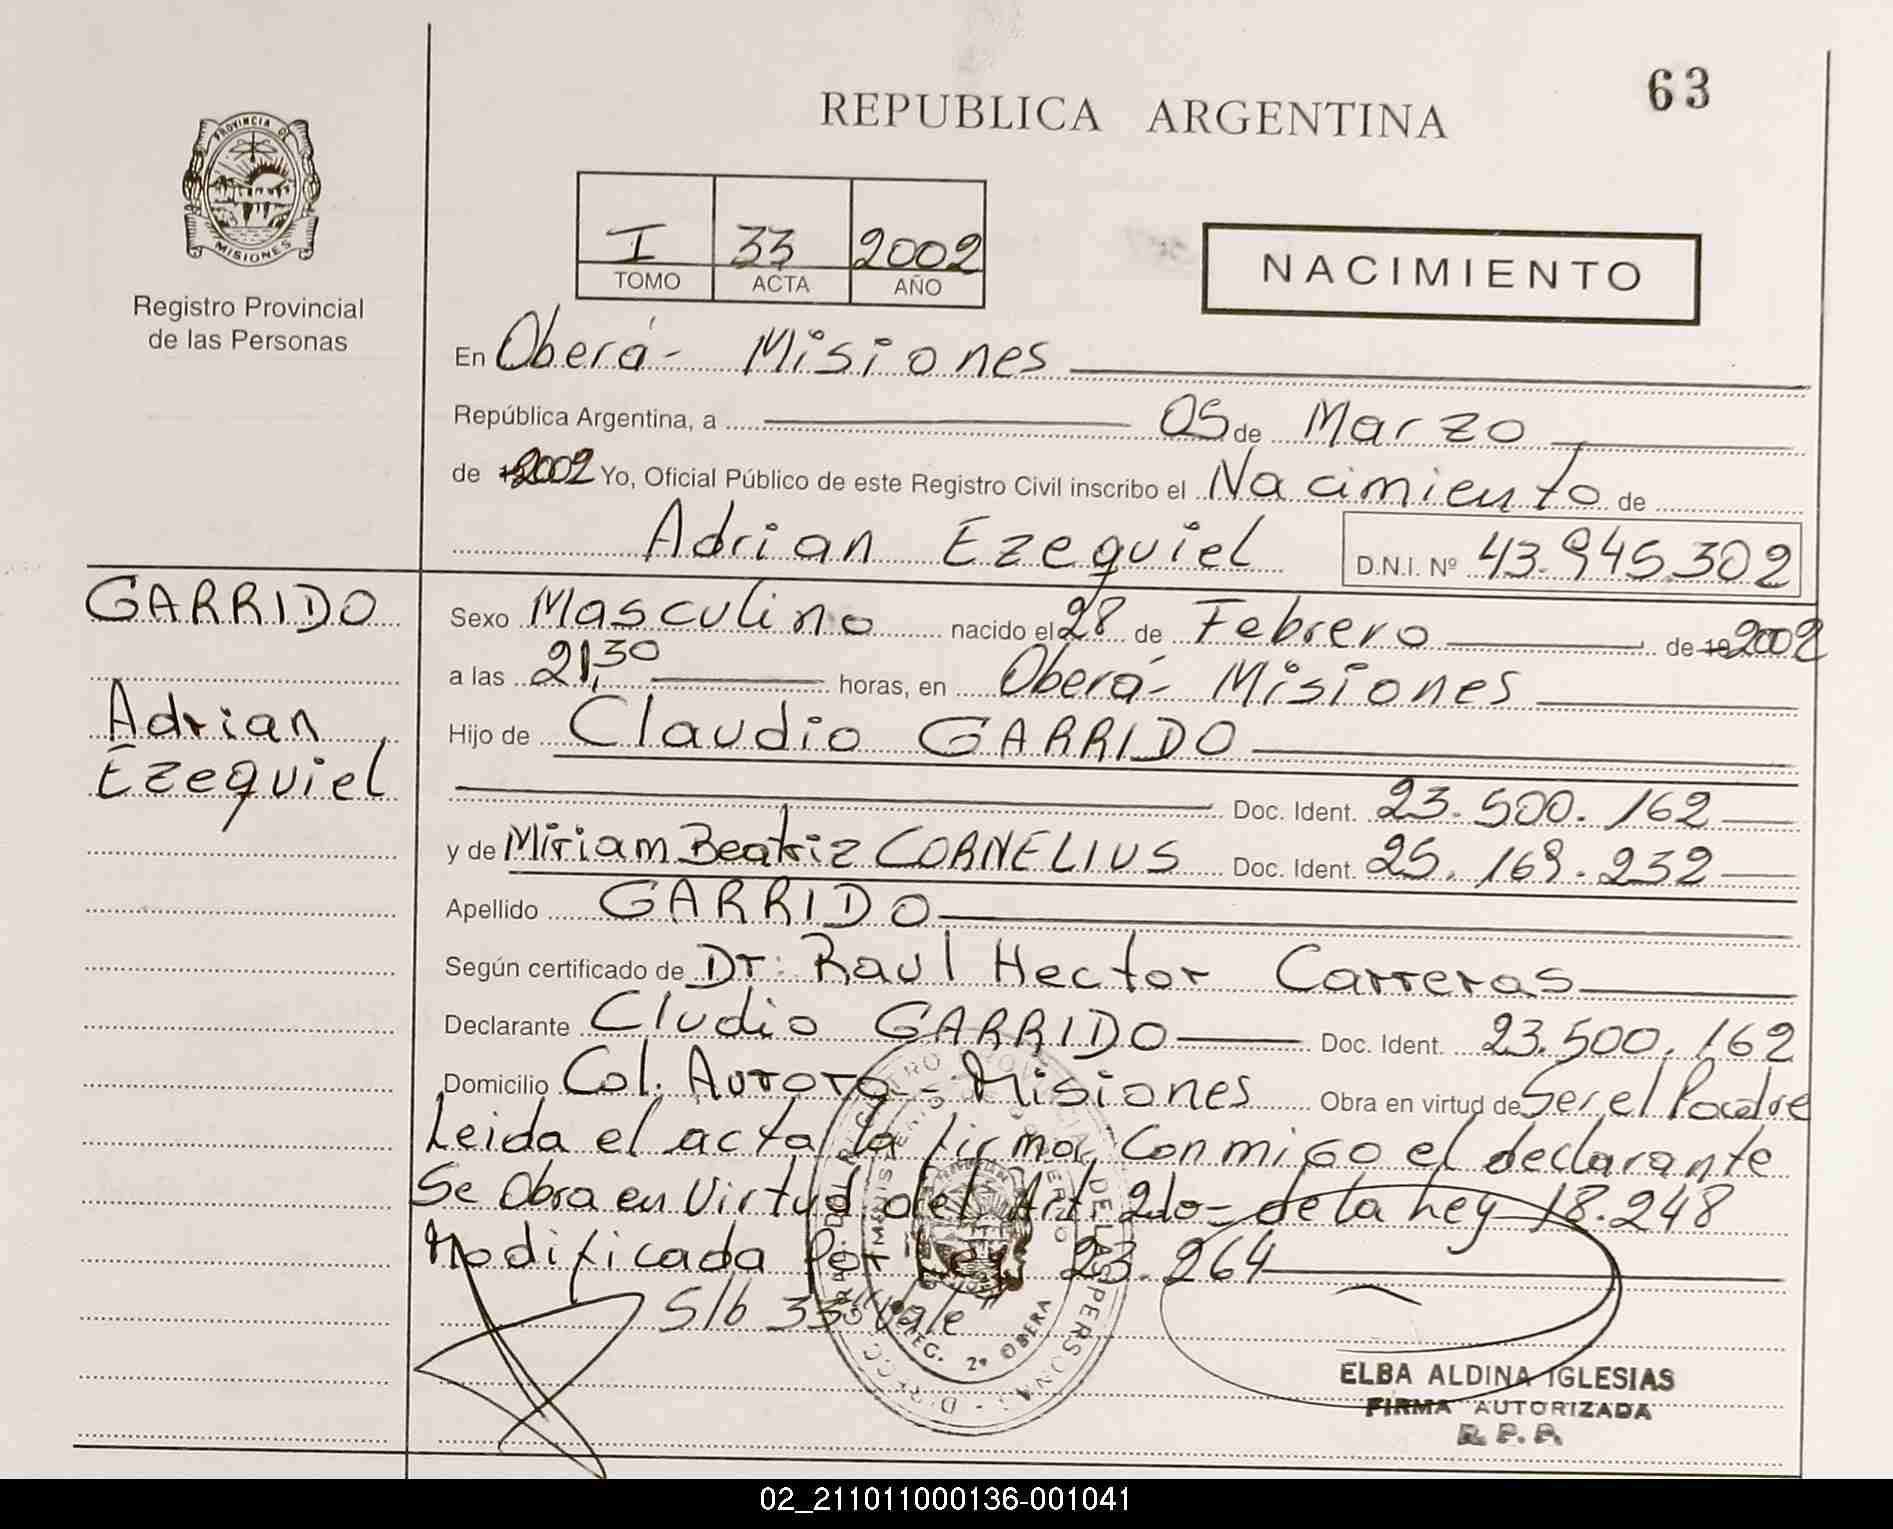 63
REPUBLICA ARGENTINA
PROVINCIA DE
MISIONES
Registro Provincial
de las Personas
I 33 2002
TOMO ACTA AÑO
NACIMIENTO
En Oberá - Misiones
República Argentina, a 05 de Marzo
de 2002 Yo, Oficial Público de este Registro Civil inscribo el Nacimiento de
Adrian Ezequiel D.N.I. Nº 43.945.302
GARRIDO
Adrian
Ezequiel
Sexo Masculino nacido el 28 de Febrero de 19 2002
a las 21,30 horas, en Oberá - Misiones
Hijo de Claudio GARRIDO
Doc. Ident. 23.500.162
y de Miriam Beatriz CORNELIUS Doc. Ident. 25.169.232
Apellido GARRIDO
Según certificado de Dr. Raul Hector Carreras
Declarante Cludio GARRIDO Doc. Ident. 23.500.162
Domicilio Col. Aurora - Misiones Obra en virtud de Ser el Padre
Leida el acta la firma Conmigo el declarante
Se Obra en Virtud del Art. 2do - de la Ley 18.248
Modificada Por Ley 23.264
S/b 33 "Vale"
REG. 2º OBERA
ELBA ALDINA IGLESIAS
FIRMA AUTORIZADA
R. P. P.
02_211011000136-001041